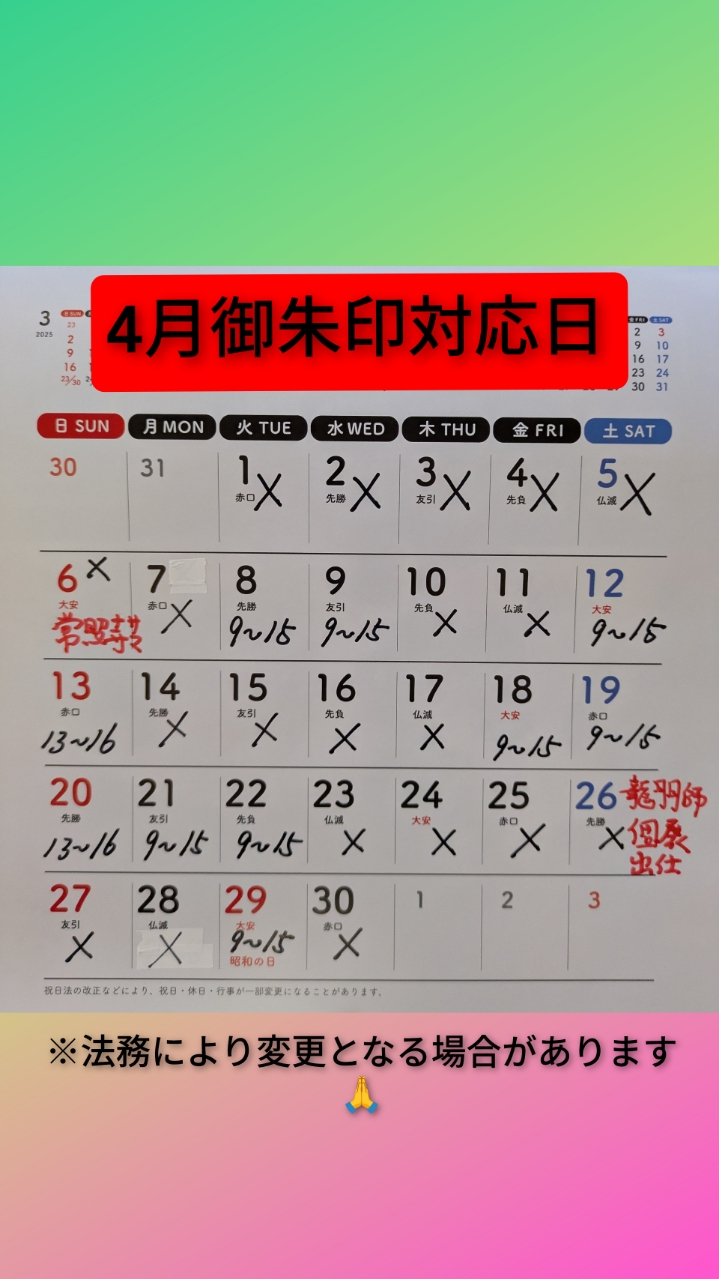 4月御朱印対応日
3
2025
日 SUN
23
2
9
16
23/30
金 FRI 土 SAT
2 3
9 10
16 17
23 24
30 31
日 SUN 月 MON 火 TUE 水 WED 木 THU 金 FRI 土 SAT
30 31 1 2 3 4 5
赤口 X 先勝 X 友引 X 先負 X 仏滅 X
6 X 7 8 9 10 11 12
大安 赤口 X 先勝 友引 先負 X 仏滅 X 大安
常照寺 9~15 9~15 9~15
13 14 15 16 17 18 19
赤口 先勝 X 友引 X 先負 X 仏滅 X 大安 赤口
13~16 9~15 9~15
20 21 22 23 24 25 26 龍羽師
先勝 友引 先負 仏滅 X 大安 X 赤口 X 先勝 X 個展
13~16 9~15 9~15 出仕
27 28 29 30 1 2 3
友引 X 仏滅 X 大安 赤口 X
9~15
昭和の日
祝日法の改正などにより、祝日・休日・行事が一部変更になることがあります。
※法務により変更となる場合があります
🙏